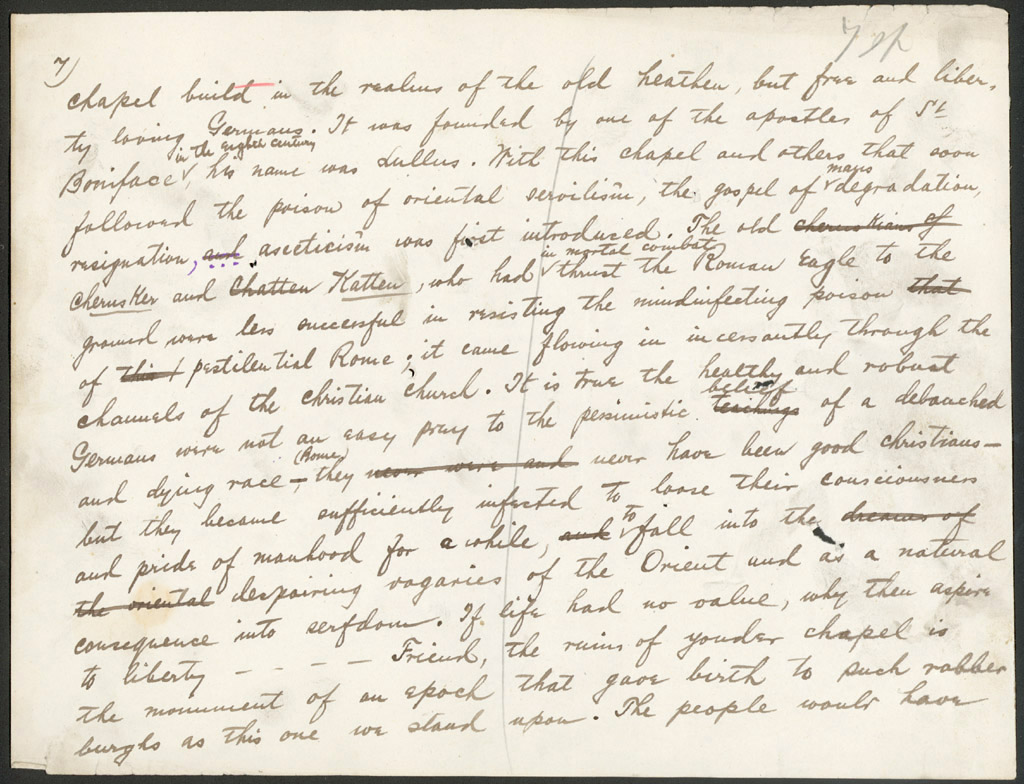 7)
chapel build in the realms of the old heathen, but free and liber-
ty loving Germans. It was founded by one of the apostles of St
in the eighth century
Boniface, his name was Lullus. With this chapel and others that soon
mans
followed the poison of oriental servilism, the gospel of degradation,
resignation, and ascetiscism was first introduced. The old cheruskians of
in mortal combat
cherusker and Chatten Katten, who had thrust the Roman Eagle to the
ground were less successful in resisting the mindinfecting poison that
of this pestilential Rome; it came flowing in incessantly through the
channels of the christian church. It is true the healthy and robust
belief of
Germans were not an easy prey to the pessimistic teachings of a debauched
(Rome)
and dying race – they never were and never have been good christians –
but they became sufficiently infected to loose their consciousness
to
and pride of manhood for a while, and fall into the dreams of
the oriental despairing vagaries of the Orient and as a natural
consequence into serfdom. If life had no value, why then aspire
to liberty – – – – – Friend, the ruins of yonder chapel is
the monument of an epoch that gave birth to such robber
burghs as this one we stand upon. The people would have